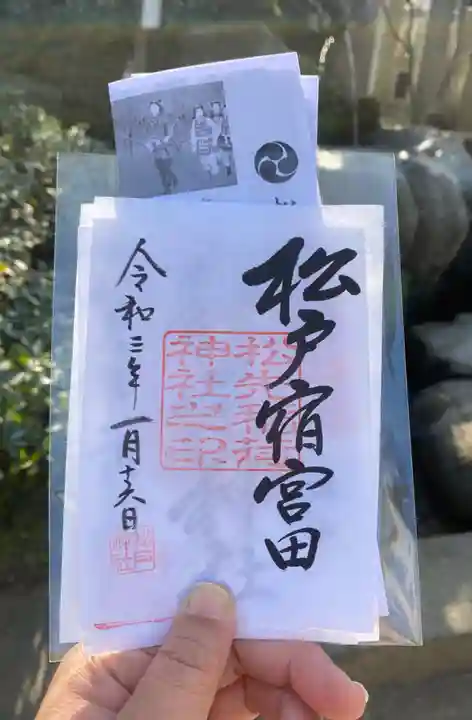 松戸宿宮田
神社之印
令和三年一月十六日